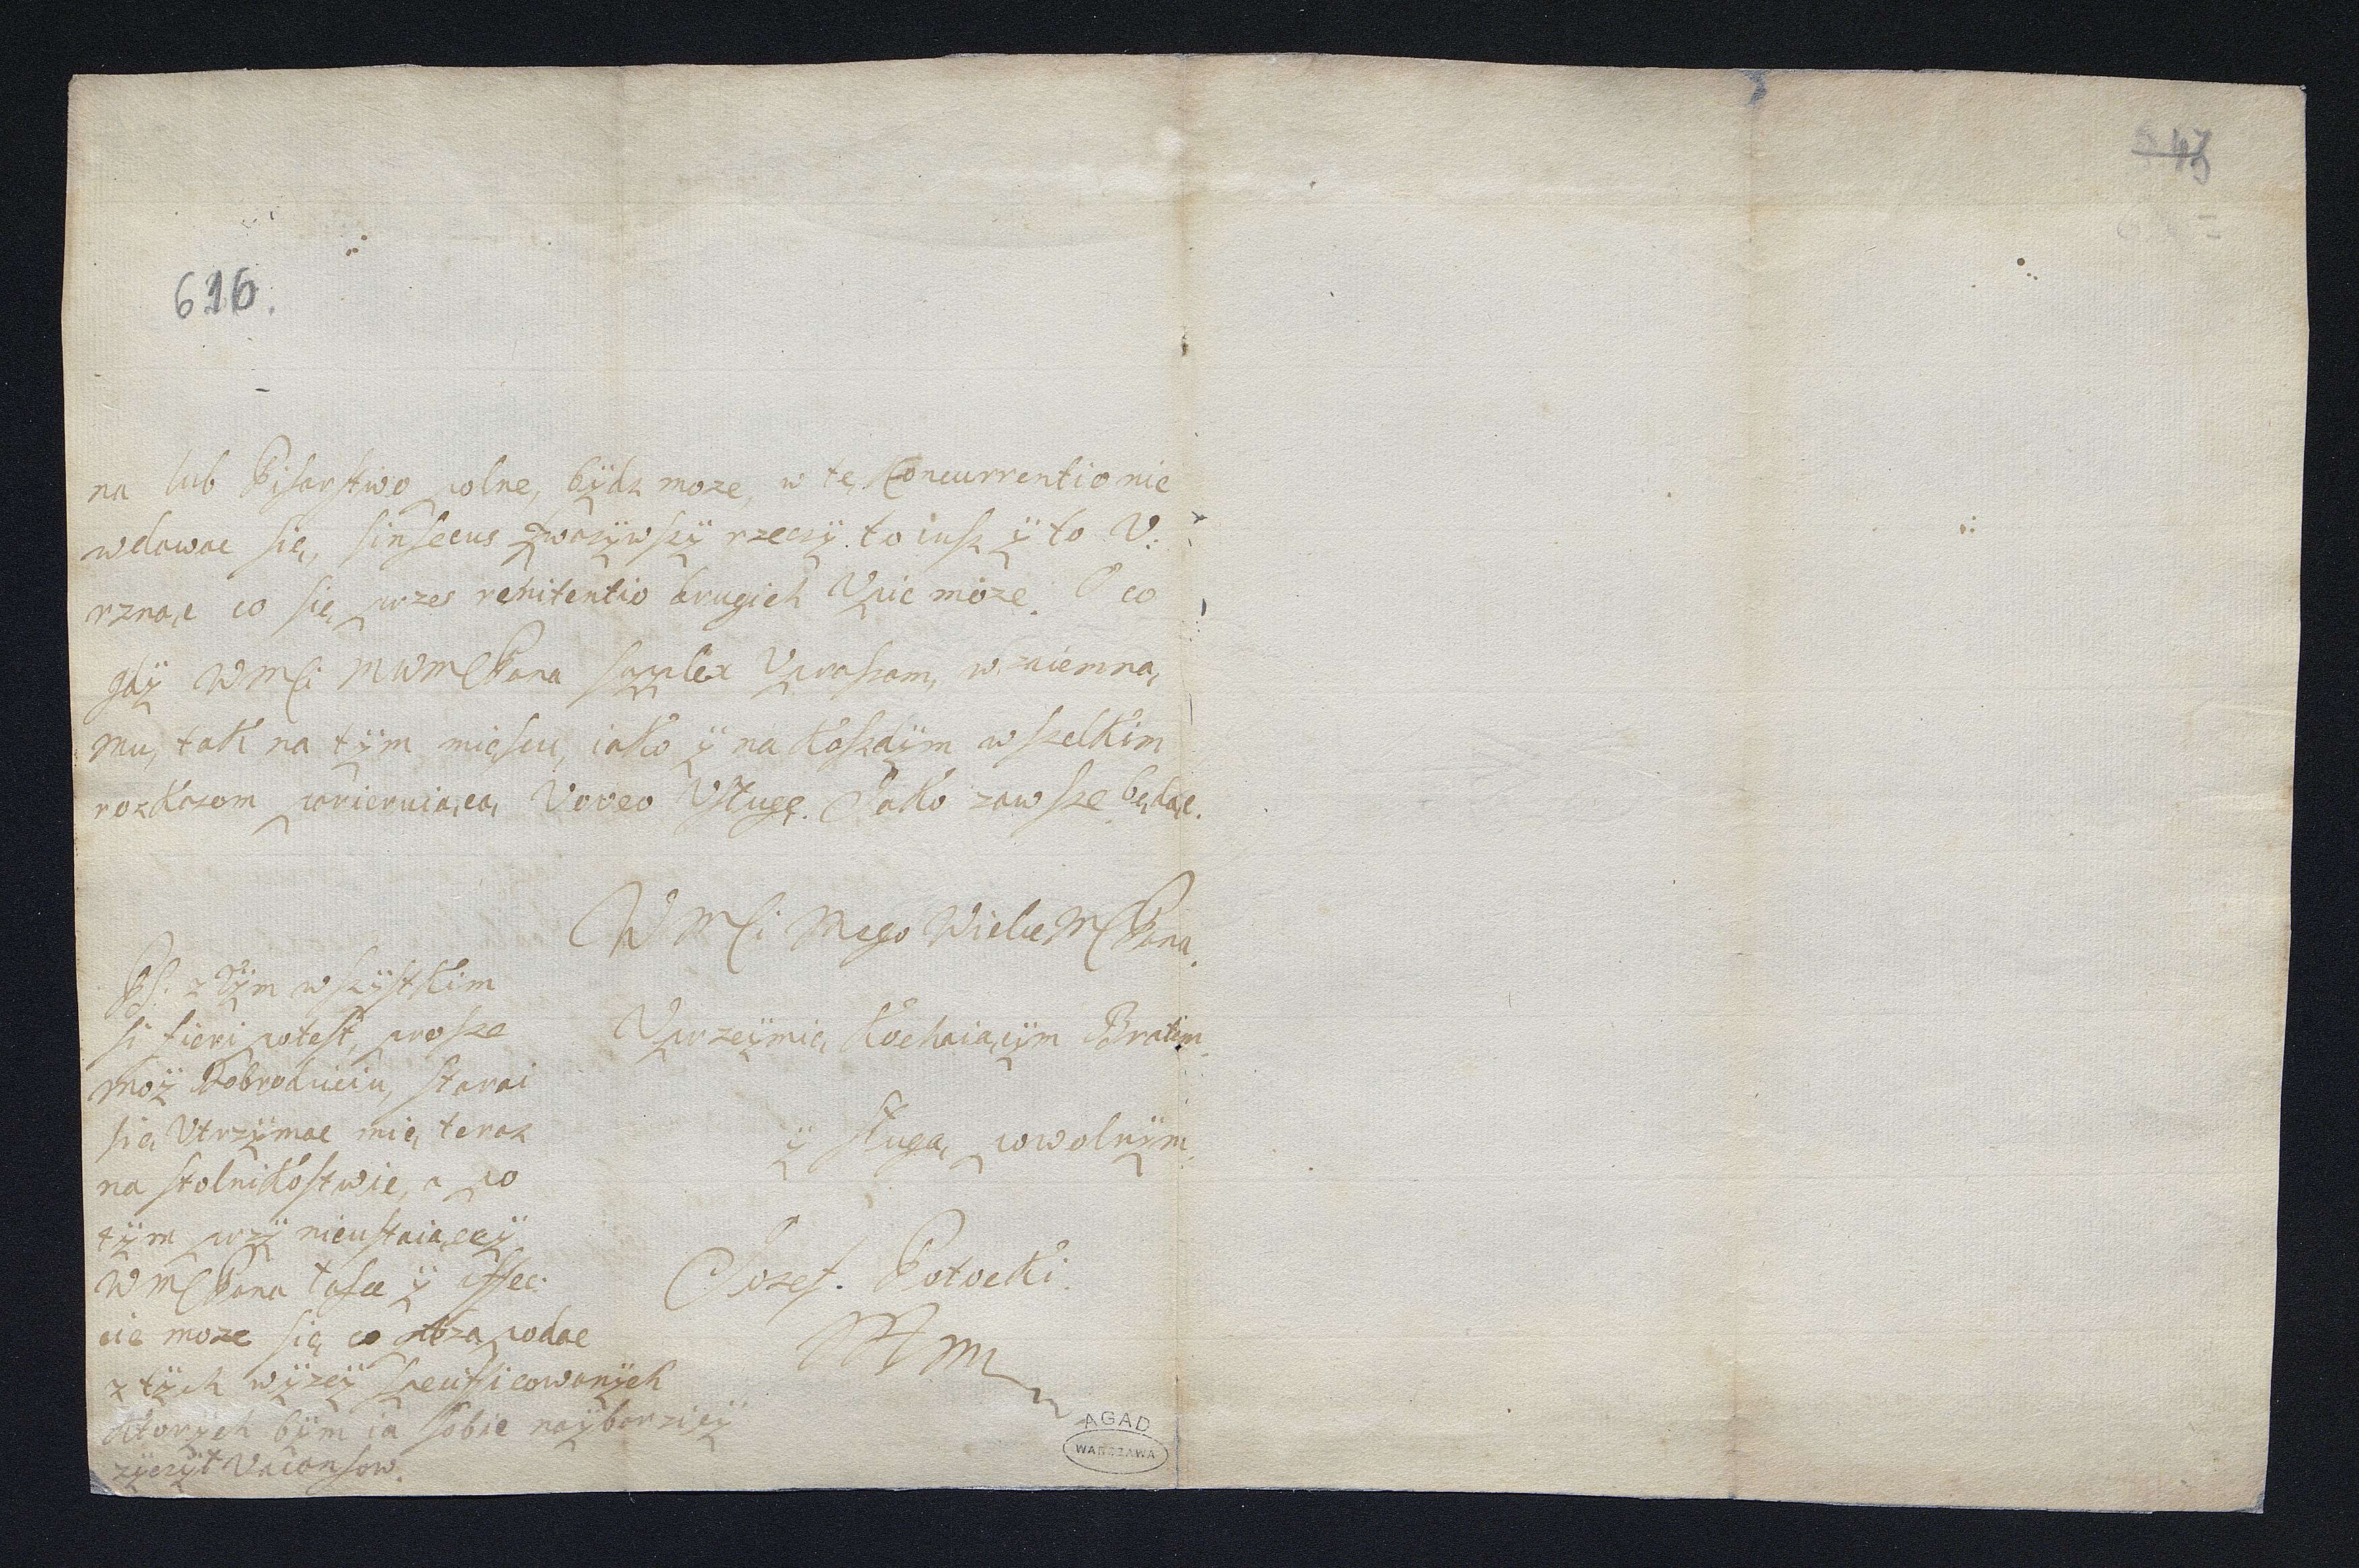 47
616.
na lub Pisarstwo wolne, bÿdz moze, w tę Concurrentio nie
wdawac się, sinsecus zwazÿwszÿ rzeczÿ to iusz ÿ to U:
rznąc co się przes renitentio drugich Upic może. O co
gdÿ WMCi MWMCPana supplex Upraszam, wzaiemną
mu, tak na tÿm miescu, iako ÿ na koszdÿm wszelkim
rozkazom Voveo Usługę. Jako zawsze będąc.
WMCi Mego Wielce MCPana.
Uprzeÿmie, kochaiącÿm Bratem
ÿ sługą powolnÿm.
Jozef. Potocki.
PS. z tÿm wszÿstkim
si fieri potest, prosze
moÿ Dobrodzieiu, starai
się Utrzÿmac mię teraz
na stolnikostwie, a po
tÿm przÿ nieustaiąceÿ
WMCPana łasce ÿ affec:
cie moze się co podac
z tÿch wÿzeÿ specificowanÿch
ktorÿch bÿm ia sobie naÿbarzieÿ
zÿczÿł Vacansow.
AGAD
WARSZAWA